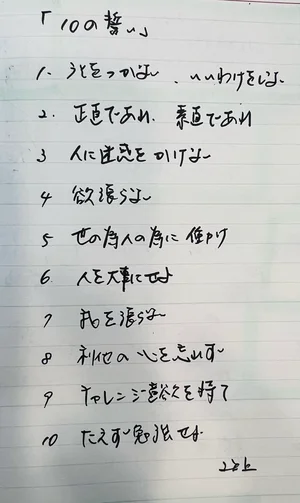 「10の誓い」
1. うそをつかない、いいわけをしない
2. 正直であれ、素直であれ
3 人に迷惑をかけない
4 欲張らない
5 世の為人の為に働け
6 人を大事にせよ
7 我を張らない
8 利他の心を忘れず
9 チャレンジ意欲を持て
10 たえず勉強せよ
以上